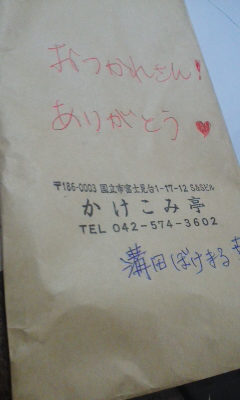 おつかれさん!
ありがとう♥
〒186-0003 国立市富士見台1-17-12 S&Sビル
かけこみ亭
TEL 042-574-3602
溝田ぼけまる